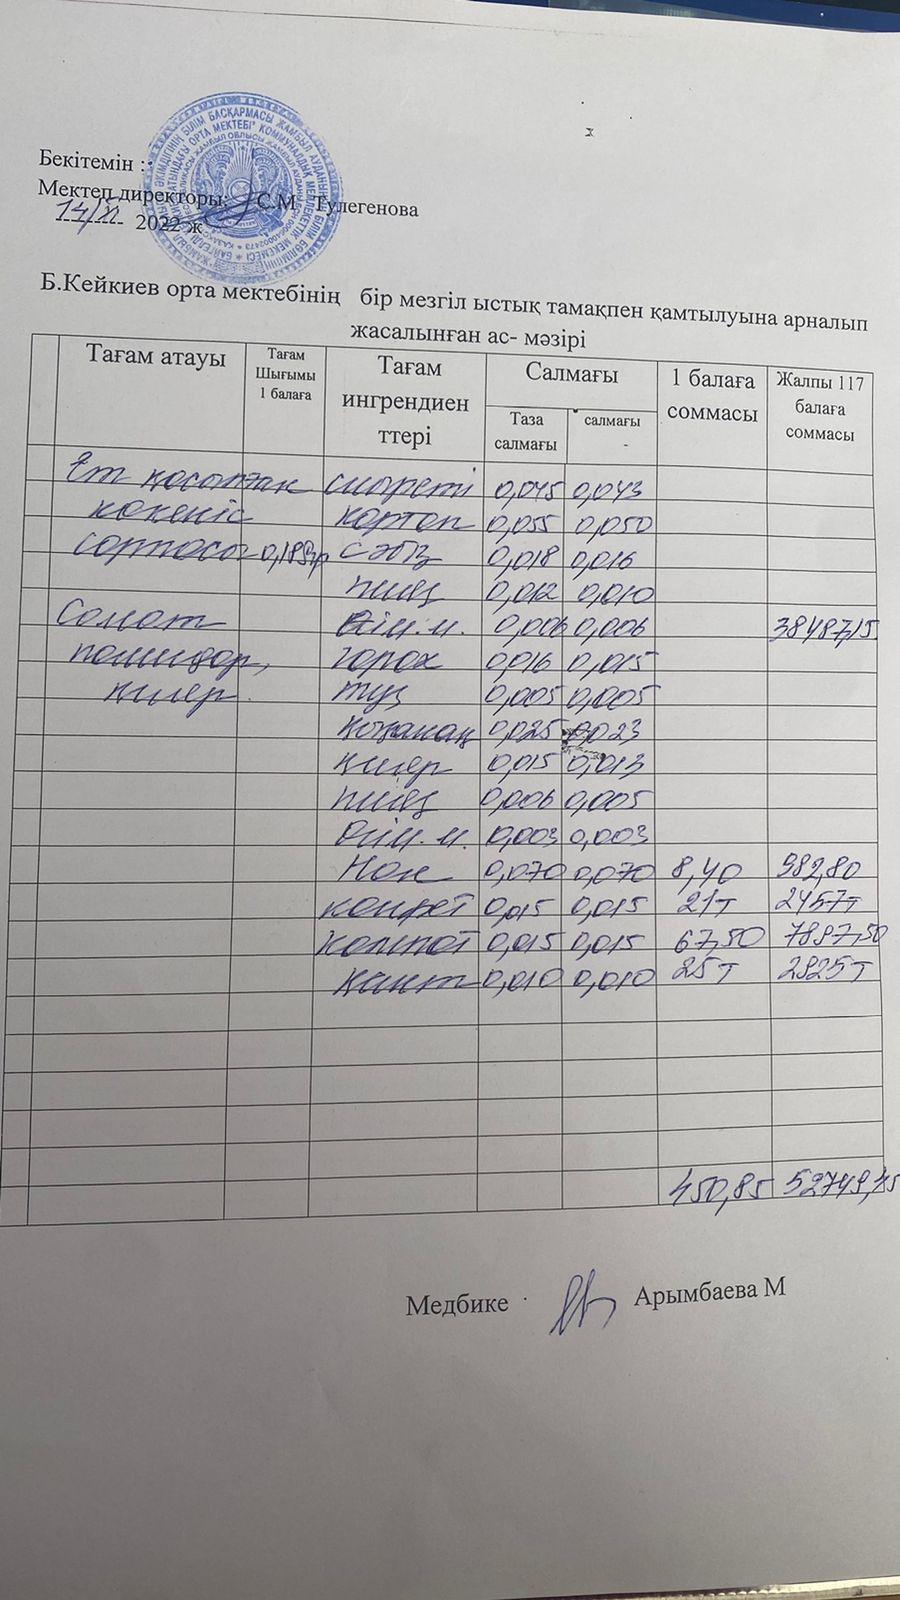 Бекітемін :
Мектеп директоры: С.М. Тулегенова
14/XI 2022 ж
Б.Кейкиев орта мектебінің бір мезгіл ыстық тамақпен қамтылуына арналып
жасалынған ас- мәзірі
Тағам атауы Тағам Шығымы 1 балаға Тағам ингрендиен ттері Салмағы 1 балаға соммасы Жалпы 117 балаға соммасы
Таза салмағы салмағы -
Ет қосылған сиыреті 0,045 0,043
көкөніс картоп 0,055 0,050
сорпасы сәбіз 0,018 0,016
пияз 0,012 0,010
Салат өсім.м. 0,006 0,006 38487,15
помидор, горох 0,016 0,015
қияр. тұз 0,005 0,005
қызанақ 0,025 0,023
қияр 0,015 0,013
пияз 0,006 0,005
өсім.м. 0,003 0,003
Нан 0,070 0,070 8,40 982,80
конфет 0,015 0,015 21т 2457т
компот 0,015 0,015 67,50 7897,50
қант 0,010 0,010 25т 2925т
450,85 52749,45
Медбике Арымбаева М